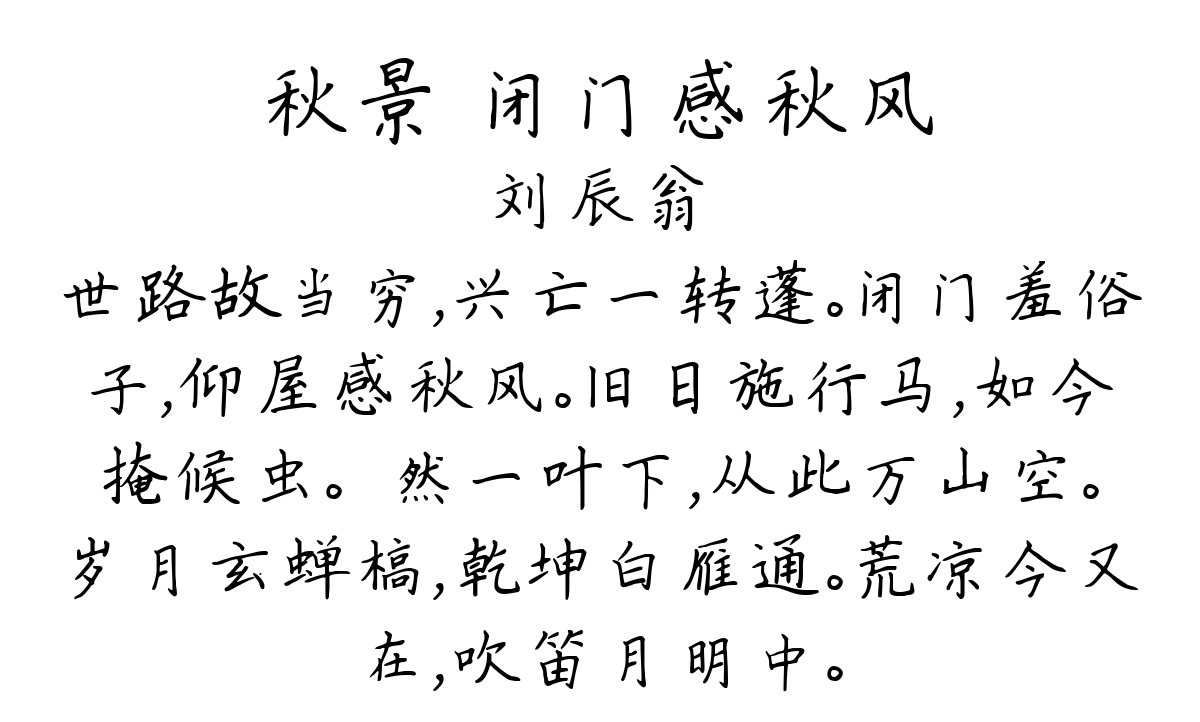 秋景 闭门感秋风
刘辰翁
世路故当穷,兴亡一转蓬。闭门羞俗
子,仰屋感秋风。旧日施行马,如今
掩候虫。 然一叶下,从此万山空。
岁月玄蝉槁,乾坤白雁通。荒凉今又
在,吹笛月明中。